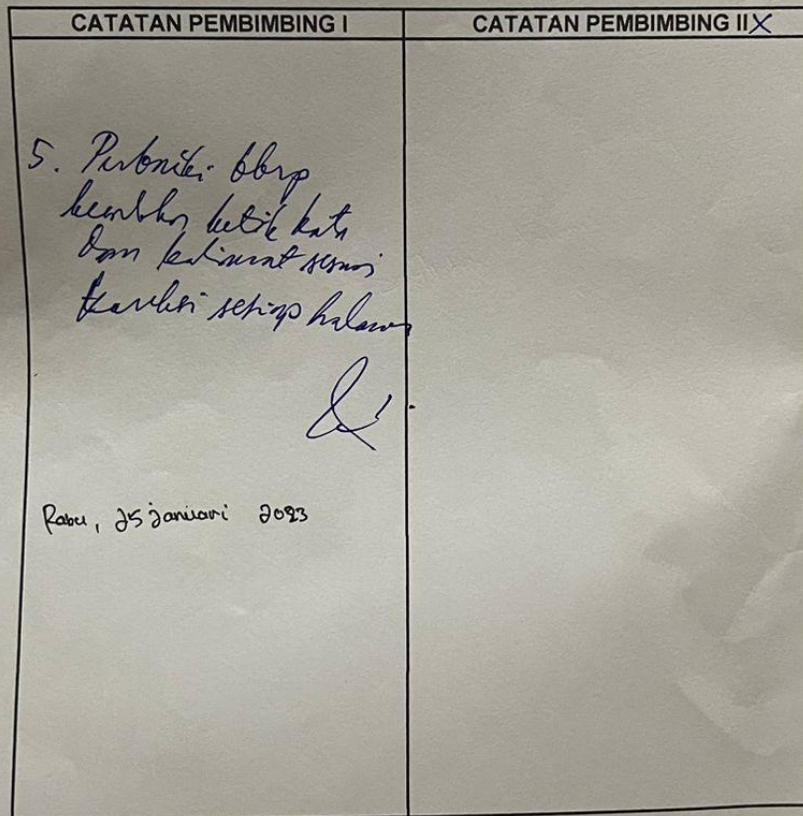 CATATAN PEMBIMBING I
CATATAN PEMBIMBING II X
5. Perbaiki bbrp
ketik kata
dan kalimat sesuai
koreksi setiap halaman
Rabu, 25 januari 2023